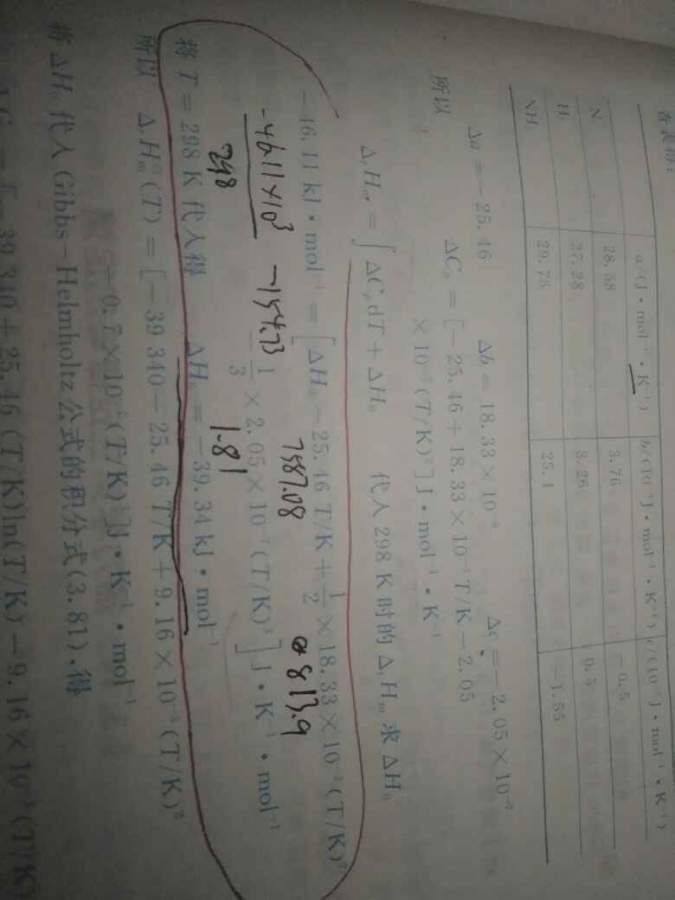 a/(J·mol⁻¹·K⁻¹) b/(10⁻³J·mol⁻¹·K⁻¹)
N 28.58 3.76 -0.5
H 27.28 3.26 0.5
NH 29.75 25.1 -1.55
Δa = -25.46 Δb = 18.33×10⁻³ Δc = -2.05×10⁻⁷
所以 ΔCₚ = [-25.46+18.33×10⁻³T/K-2.05
×10⁻⁷(T/K)²]J·mol⁻¹·K⁻¹
ΔᵣHₘ = ∫ΔCₚdT+ΔH₀ 代入298 K时的ΔᵣHₘ求ΔH₀
-46.11 kJ·mol⁻¹ = [ΔH₀-25.46 T/K+1/2×18.33×10⁻³(T/K)²
-46.11×10³ 7587.08 813.9
-1/3×2.05×10⁻⁷(T/K)³]J·K⁻¹·mol⁻¹
298 1.81
将T=298 K代入得 ΔH₀=-39.34 kJ·mol⁻¹
所以 ΔᵣHₘ(T)=[-39 340-25.46 T/K+9.16×10⁻³(T/K)²
-0.7×10⁻⁷(T/K)³]J·K⁻¹·mol⁻¹
将ΔH₀代入Gibbs-Helmholtz公式的积分式(3.81),得
-39 340+25.46(T/K)ln(T/K)-9.16×10⁻³(T/K)